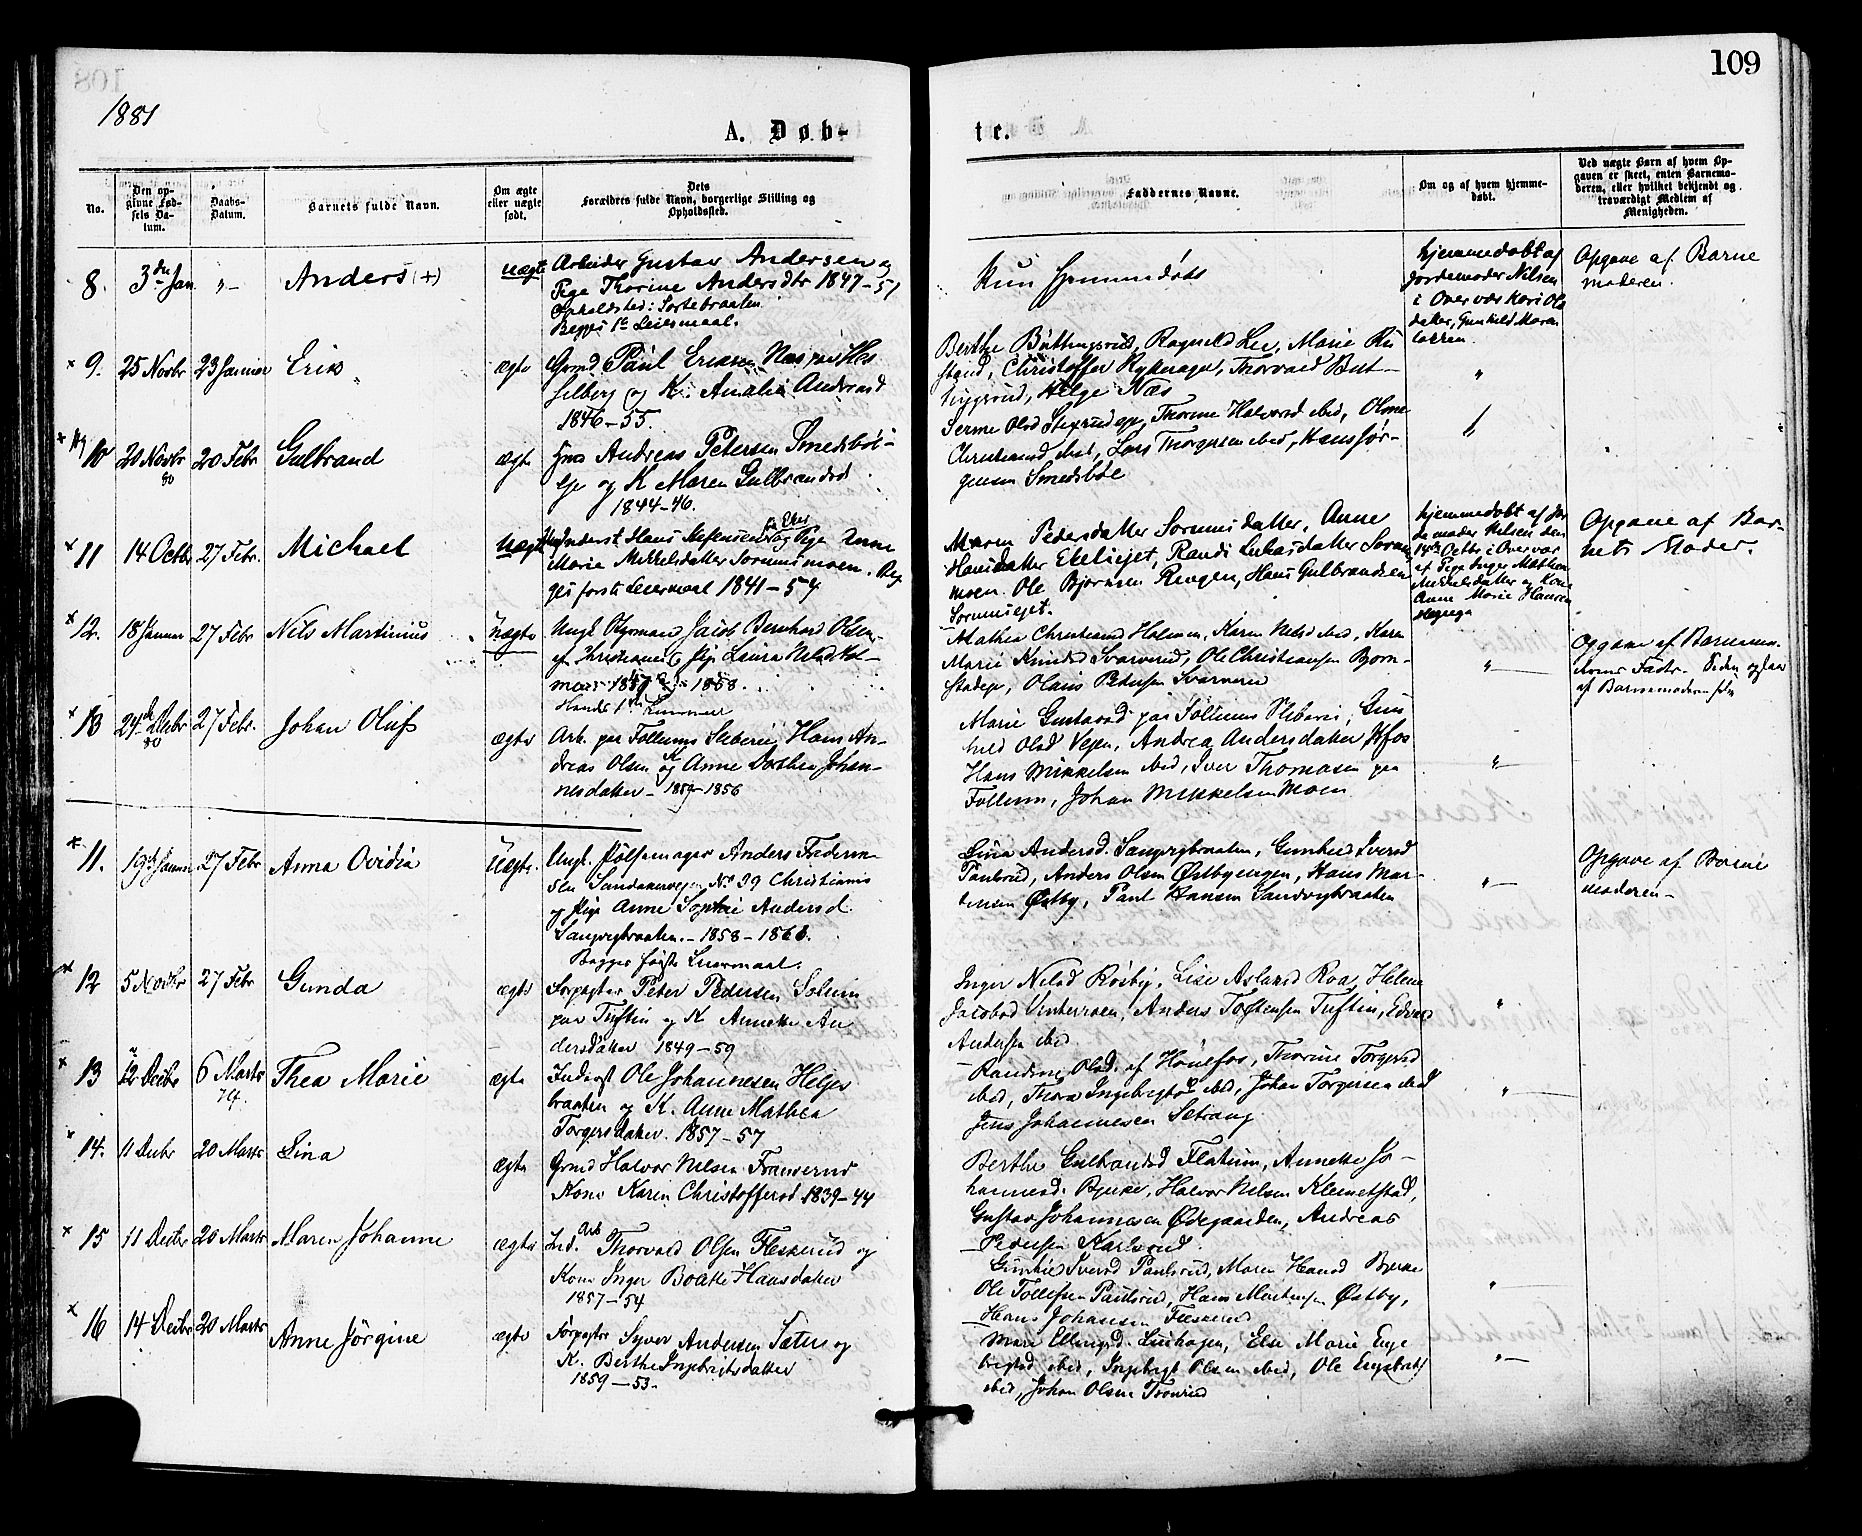 109
1881
A. Døb-
te.
No.
Den op-
givne Fød-
sels Da-
tum.
Daabs-
Datum.
Barnets fulde Navn.
Om ægte
eller uægte
født.
Dets
Forældres fulde Navn, borgerlige Stilling og
Opholdssted.
Faddernes Navne.
Om og af hvem hjemme-
døbt.
Ved uægte Barn af hvem Op-
gaven er skeet, enten Barnemo-
deren, eller hvilket bekjendt og
troværdigt Medlem af
Menigheden.
8. 3die Jan "- Anders (+) uægte
Arbeider Gustav Andersen og
Pige Thorine Andersdtr 1847-51
Opholdsted: Sortebraaten
Begges 1ste Leiermaal.
Kun hjemmedøbt
hjemmedøbt af
Jordemoder Nilsen
i Overvær Kari Ols
datter, Gunhild
Opgave af Barne
moderen.
x 9. 25 Novbr 23 Januar Erik ægte
Grmd Paul Ericsen Næs paa Hes
selberg og K. Amalia Andersd
1846-55.
Berthe Buttingsrud, Ragnild Lee, Marie Ru
stand, Christoffer Rykerager, Thorvald But-
tingsrud, Helge Næs
"
x 10 20 Novbr 80 20 Febr Gulbrand ægte
Andreas Petersen Smedsbøl-
eje og K Maren Gulbrandsd
1844-46.
Olsd Thorine Halvorsd ibid, Oline
Christiansd ibid, Lars Thorgersen ibid, Hans Jør-
gensen Smedsbøle
"
x 11 14 Octbr 27 Febr. Michael uægte
Inderst Hans og Pige Anne
Marie Mikkelsdatter Sorumsmoen. Beg
ges første Leiermaal 1841-54
Maren Pedersdatter Anne
Hansdatter Randi Lukasdatter Sorum
moen. Ole Bjørnsen Ringen, Hans Gulbrandsen
Sorumsejet.
hjemmedøbt af Jor
demoder Nilsen den
14de Octbr i Overvær
af Pige Inger Mathea
Mikkelsdatter og Kone
Anne Marie Hansen
Opgave af Bar-
nets Moder.
x 12. 18 Januar 27 Febr Nils Martinius uægte
Ungk Jacob Bernhard Olsen
Christiania og Pige Laura Nilsd Hol-
1868.
Mathea Christiansd Holmen, Karen Nilsd ibid, Karen
Marie Knudsd Svarverud, Ole Christiansen Bjørn-
stadeje, Olaus Pedersen Svarverud
"
Opgave af Barnemo-
derens Fader. Siden ogsaa
af Barnemoderen selv
x 13 24de Decbr 80 27 Febr. Johan Oluf ægte
Arb. paa Follums Sliberi, Hans An-
dreas Olsen og K Anne Dorthea Johan-
nesdatter - 1859-1856
Marie Gustavsd paa Follums Sliberi, Gun
hild Olsd Vejen, Andrea Andersdatter
Hans Mikkelsen ibid, Iver Thomasen paa
Follum, Johan Mikkelsen Moen
"
x 11. 19de Januar 27 Febr Anna Ovidia uægte.
Ungk. Pølsemager Anders
sen No 39 Christiania
og Pige Anne Sophie Andersd.
Sangvigbraaten. - 1858-
Begges første Leiermaal.
Lina Andersd. Sangvigbraaten, Gunhild Iversd
Paulsrud, Anders Olsen Østbyengen, Hans Mar-
tinsen Østby, Paul Hansen Sandvigbraaten
"
Opgave af Barne
moderen-
x 12 5 Novbr 27 Febr Gunda ægte
Forpagter Peter Pedersen Solum
paa Tuftin og K Annette An
dersdatter 1849-59
Inger Nilsd Røsby, Lise Aslaksd Roa, Helene
Jacobsd Vinterroen, Anders Torstensen Tuftin, Edvard
Andersen ibid.
"
x 13 12 Decbr 6 Marts Thea Marie ægte
Inderst Ole Johannesen Helges
braaten og K. Anne Mathea
Torgersdatter. 1857-57
Randine Olsd. af Hønefos, Thorine Torgersd
ibid, Thora Ingebrigtsd ibid, Johan Torgersen ibid
Jens Johannesen Setrang
"
14. 11 Decbr 20 Marts Lina ægte
Grmd Halvor Nilsen
Kone Karin Christoffersd 1839-44
Berthe Gulbrandsd Flatum, Annette Jo-
hannesd. Bjerke, Halvor Nilsen Klemetstad,
Gustav Johannesen Ødegaarden, Andreas
Pedersen Karlsrud.
x 15 11 Decbr 20 Marts Maren Johanne ægte
Ind. Arb Thorvald Olsen Fleskerud og
Kone Inger Bolette Hansdatter
1857-54
Gunhild Iversd Paulsrud, Maren Hansd Bjerke
Ole Tollefsen Paulsrud, Hans Martinsen Østby,
Hans Johansen Fleskerud
"
x 16 14 Decbr 20 Marts Anne Jørgine ægte
Forpagter Syver Andersen Sætre og
K. Berthe Ingebrigtsdatter
1859-53.
Mari Else Marie Enge
brigtsd ibid, Ingebrigt Olsen ibid, Ole
ibid, Johan Olsen
"